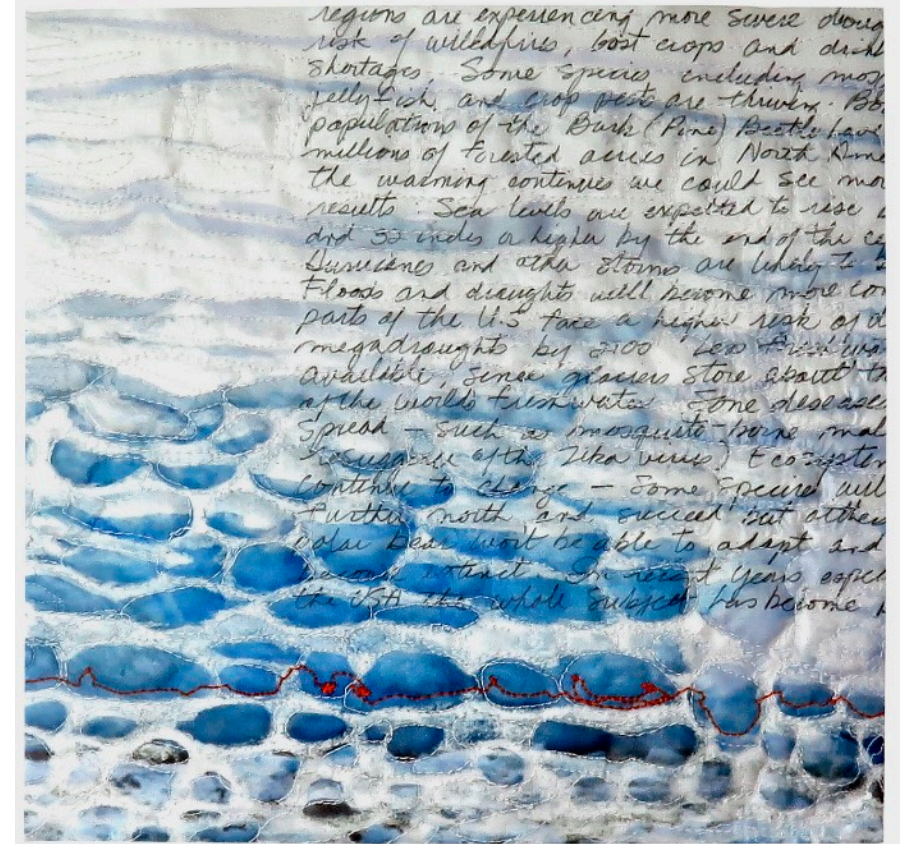 regions are experiencing more severe droug
risk of wildfires, lost crops and drink
shortages. Some species, including mos
jellyfish, and crop pests are thriving. Bo
populations of the Bark (Pine) Beetle have
millions of forested acres in North Ame
the warming continues we could see mor
results. Sea levels are expected to rise
and 32 inches or higher by the end of the ce
Hurricanes and other storms are likely to
Floods and droughts will become more con
parts of the U.S face a higher risk of d
megadroughts by 2100 Less fresh wa
available, since glaciers store about th
of the worlds freshwater. Some diseases
Spread – such as mosquito-borne mal
resurgence of the Zika virus) Ecosystem
continue to change – Some species will
further north and succeed but others
polar bear won't be able to adapt and
become extinct. In recent years espec
the USA the whole subject has become p